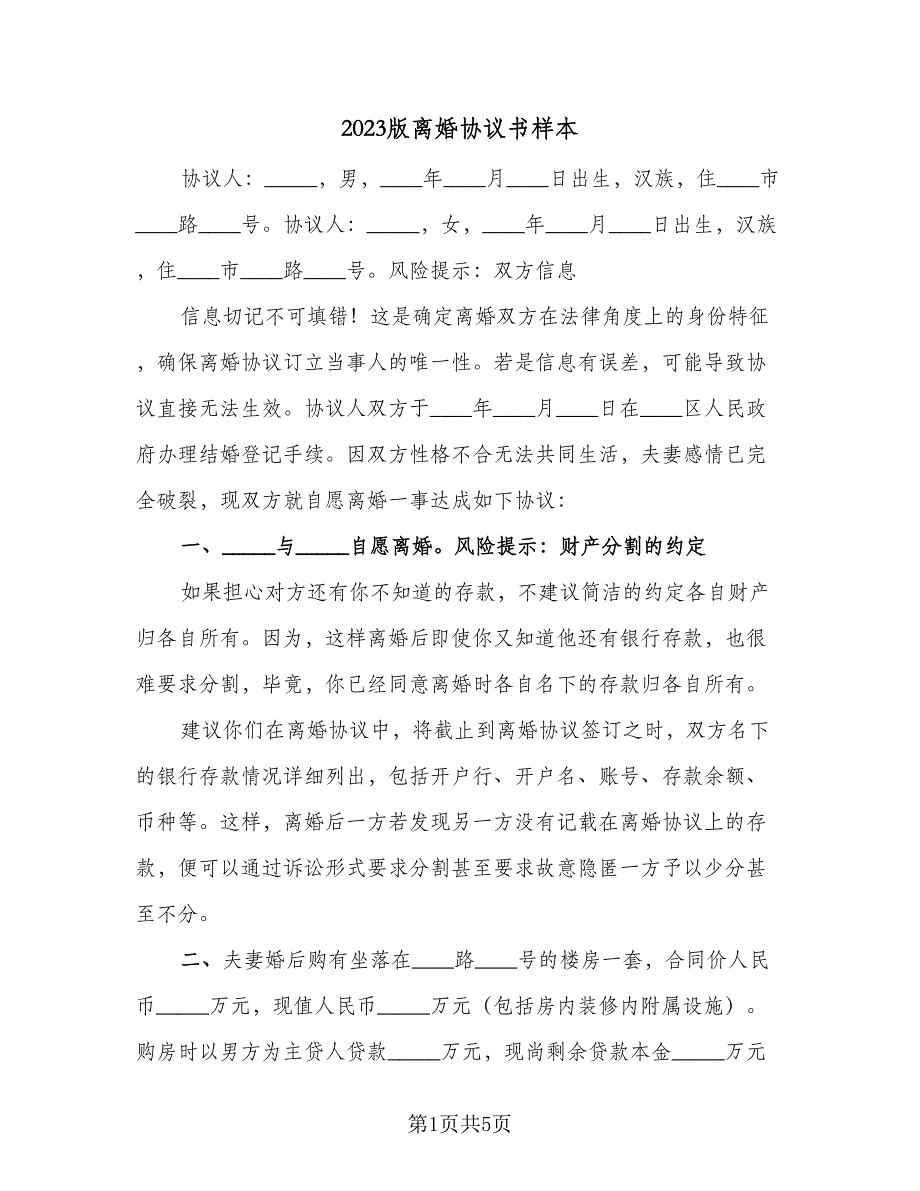 2023版离婚协议书样本
协议人：_____，男，____年____月____日出生，汉族，住____市
____路____号。协议人：_____，女，____年____月____日出生，汉族
，住____市____路____号。风险提示：双方信息
信息切记不可填错！这是确定离婚双方在法律角度上的身份特征
，确保离婚协议订立当事人的唯一性。若是信息有误差，可能导致协
议直接无法生效。协议人双方于____年____月____日在____区人民政
府办理结婚登记手续。因双方性格不合无法共同生活，夫妻感情已完
全破裂，现双方就自愿离婚一事达成如下协议：
一、_____与_____自愿离婚。风险提示：财产分割的约定
如果担心对方还有你不知道的存款，不建议简洁的约定各自财产
归各自所有。因为，这样离婚后即使你又知道他还有银行存款，也很
难要求分割，毕竟，你已经同意离婚时各自名下的存款归各自所有。
建议你们在离婚协议中，将截止到离婚协议签订之时，双方名下
的银行存款情况详细列出，包括开户行、开户名、账号、存款余额、
币种等。这样，离婚后一方若发现另一方没有记载在离婚协议上的存
款，便可以通过诉讼形式要求分割甚至要求故意隐匿一方予以少分甚
至不分。
二、夫妻婚后购有坐落在____路____号的楼房一套，合同价人民
币_____万元，现值人民币_____万元（包括房内装修内附属设施）。
购房时以男方为主贷人贷款_____万元，现尚剩余贷款本金_____万元
第1页共5页